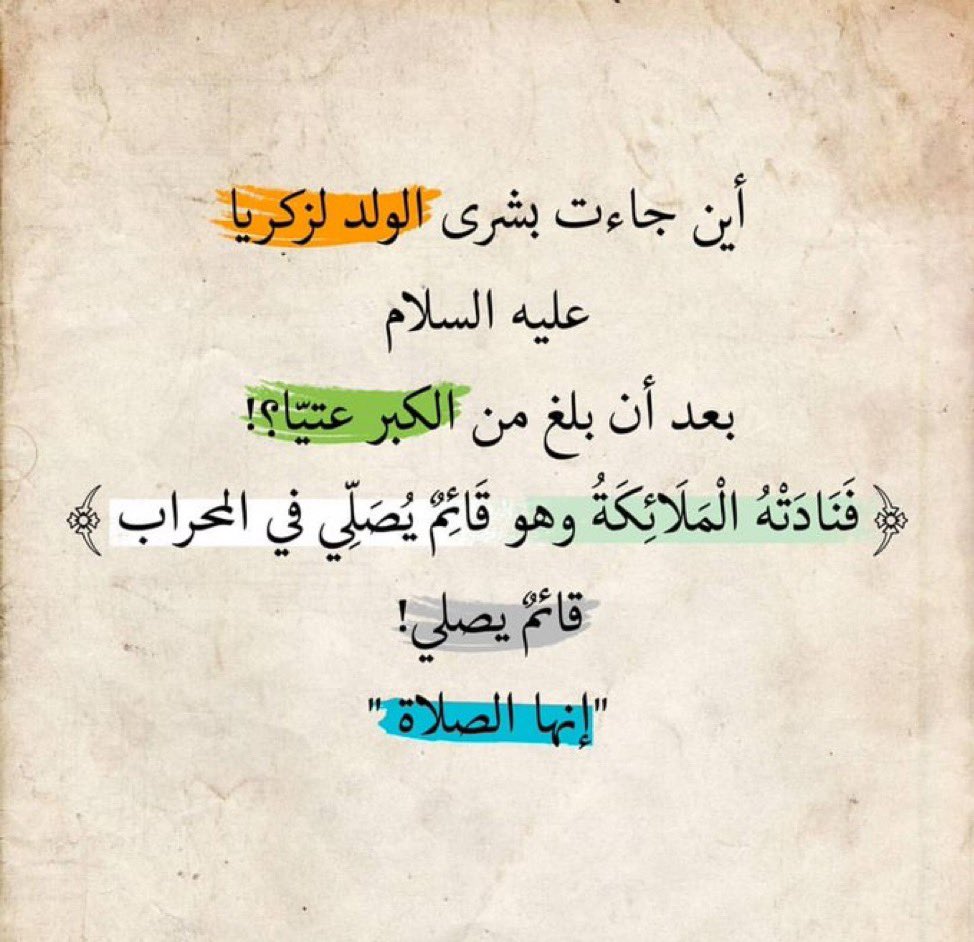 أين جاءت بشرى الولد لزكريا
عليه السلام
بعد أن بلغ من الكبر عتيّا؟!
﴿ فَنَادَتْهُ الْمَلَائِكَةُ وهو قَائِمٌ يُصَلِّي في المحراب ﴾
قائمٌ يصلي!
"إنها الصلاة "